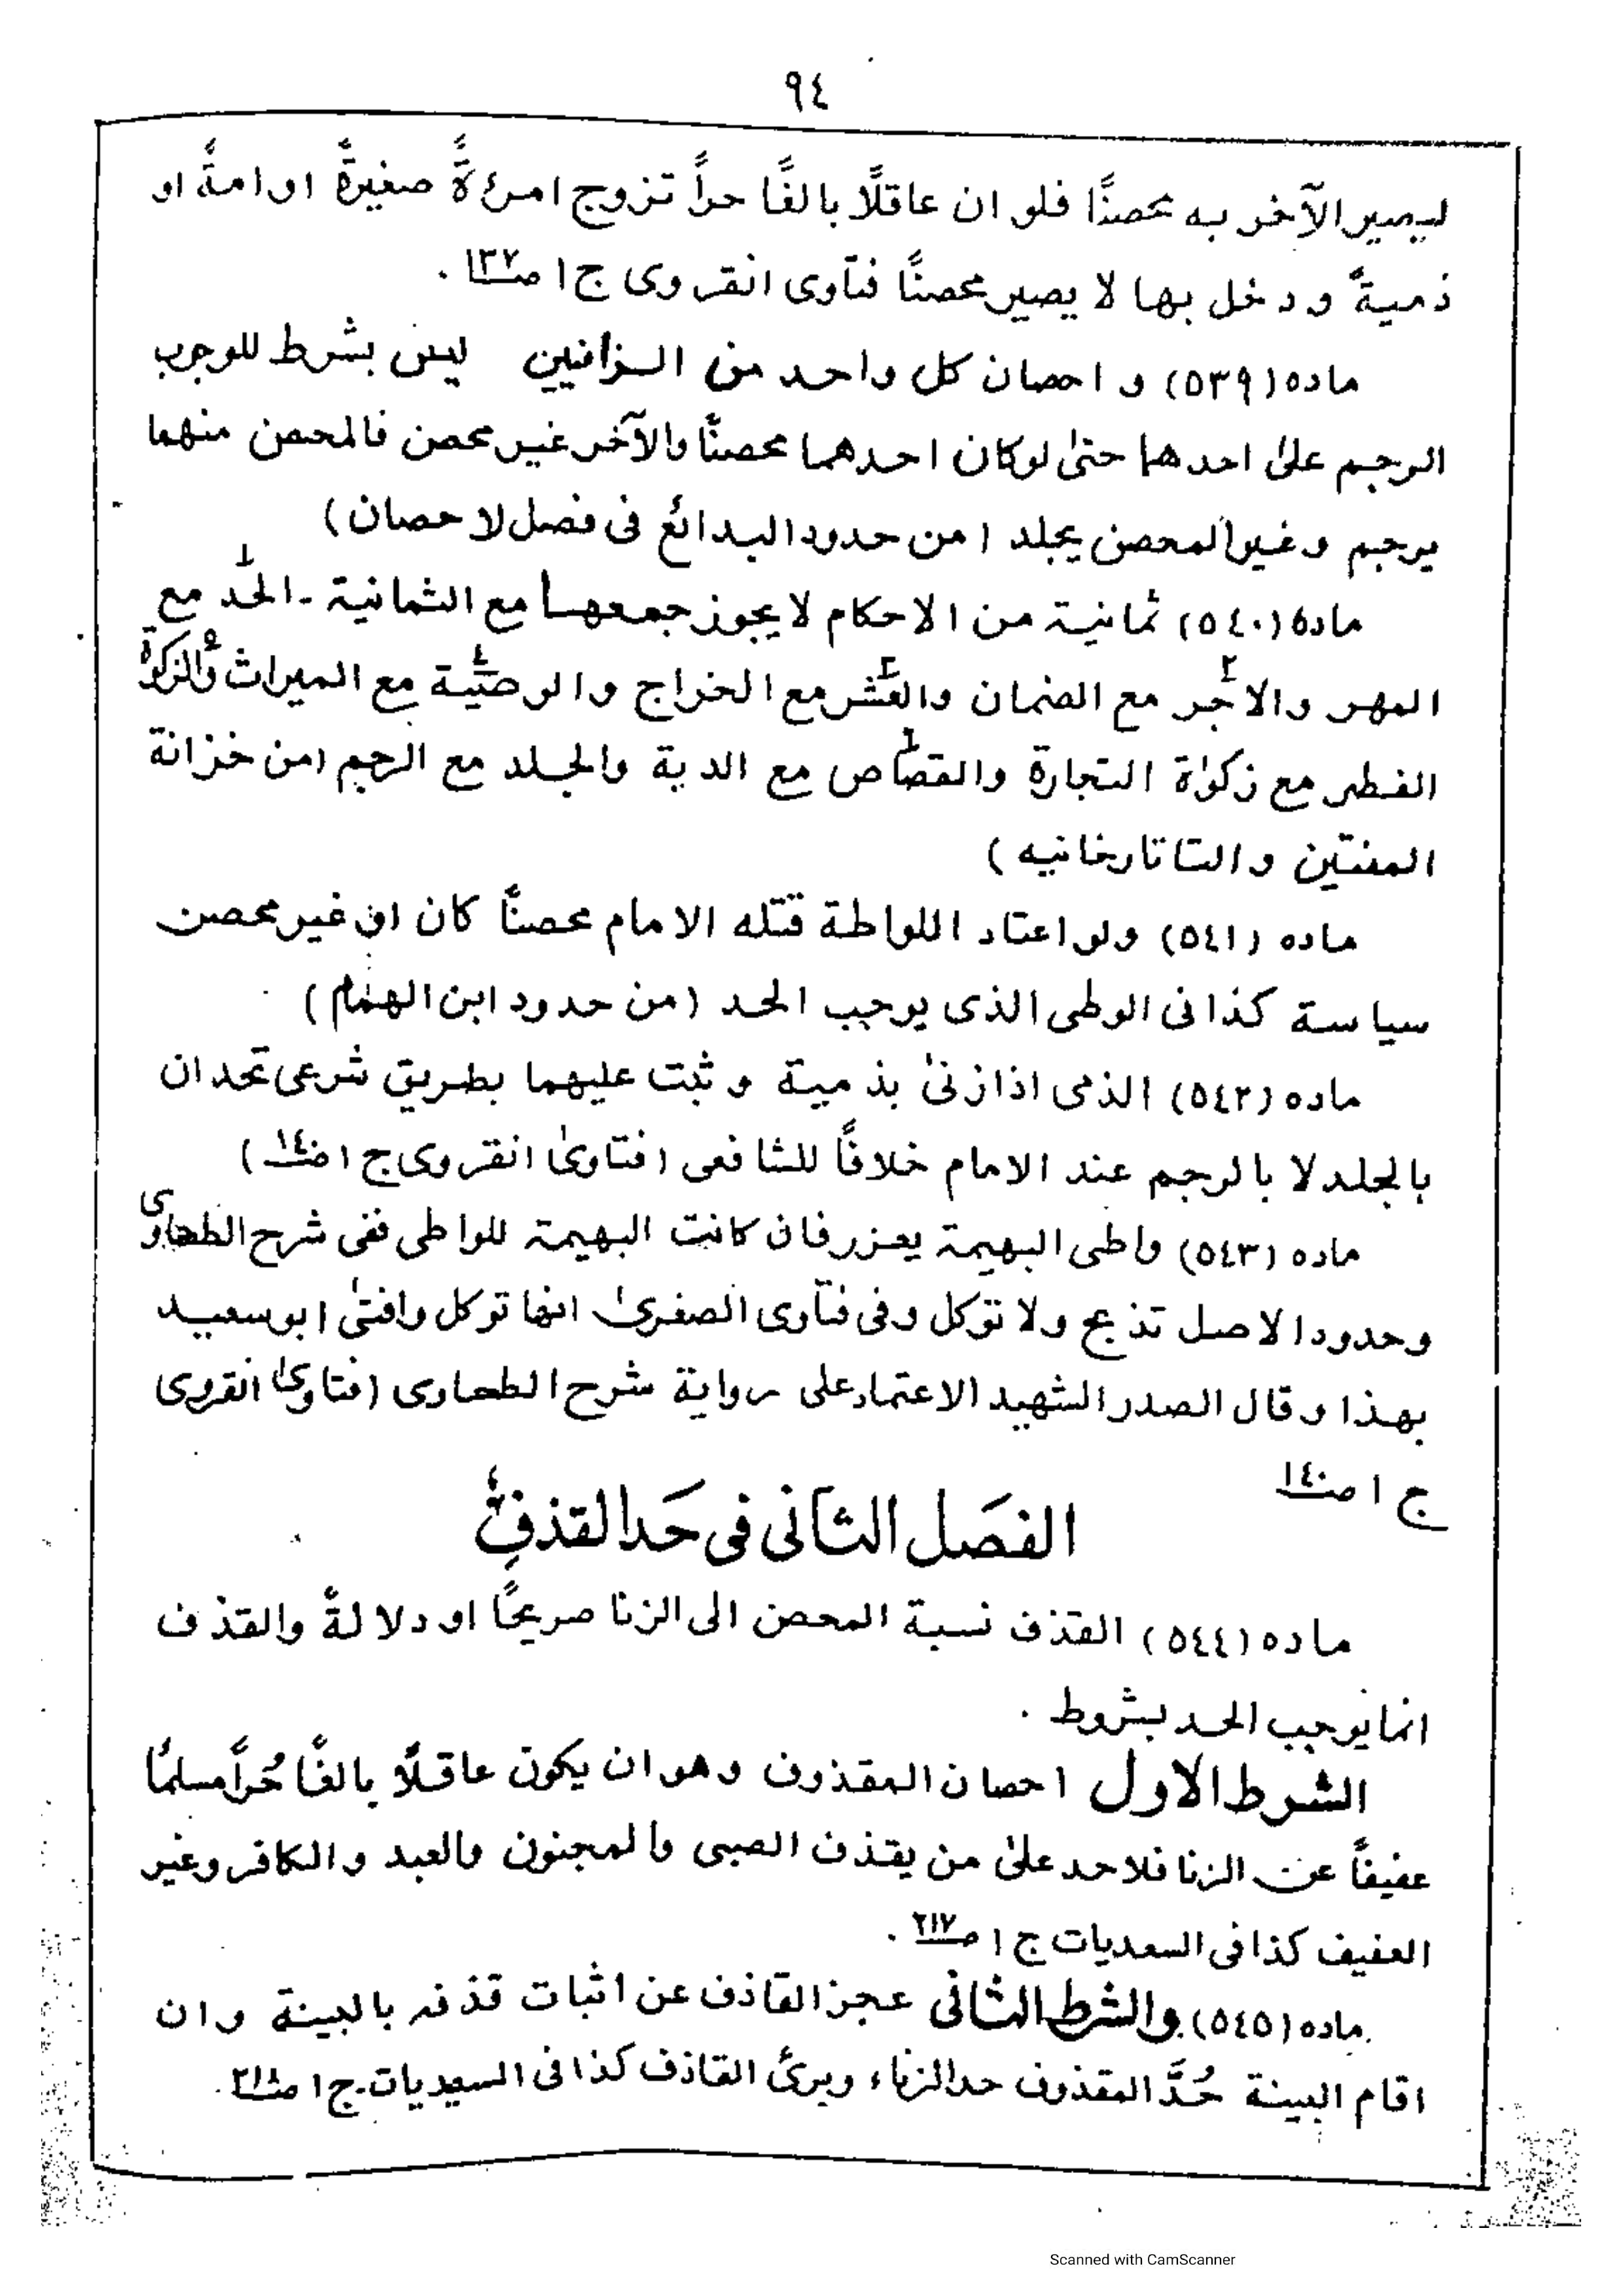 ٩٤
ليصير الآخر به محصنًا فلو ان عاقلًا بالغًا حراً تزوج امرءةً صغيرةً او امةً او
ذميةً ودخل بها لا يصير محصنًا فتاوى انقروى ج ا صـ١٣٧ .
ماده (٥٣٩) و احصان كل واحد من الزانيين ليس بشرط للوجوب
الرجم علىٰ احدهما حتىٰ لوكان احدهما محصنًا والآخر غير محصن فالمحصن منهما
يرجم وغير المحصن يجلد (من حدود البدائع فى فصل لاحصان)
مادة (٥٤٠) ثمانية من الاحكام لا يجوز جمعها مع الثمانية - الحد١ مع
المهر والاجر٢ مع الضمان والعشر٣ مع الخراج والوصية٤ مع الميراث والزكوة٥
الفطر مع زكوٰة التجارة والقصاص٦ مع الدية والجلد مع الرجم (من خزانة
المفتين والتاتارخانيه)
ماده (٥٤١) ولو اعتاد اللواطة قتله الامام محصنًا كان او غير محصن
سياسة كذا فى الوطى الذى يوجب الحد (من حدود ابن الهمام)
ماده (٥٤٢) الذمى اذا زنىٰ بذمية و ثبت عليهما بطريق شرعى تحدان
بالجلد لا بالرجم عند الامام خلافًا للشافعى (فتاوىٰ انقروى ج ا صـ١٤)
ماده (٥٤٣) واطى البهيمة يعزر فان كانت البهيمة للواطى ففى شرح الطحاوى
وحدود الاصل تذبح ولا توكل وفى فتآوى الصغرىٰ انها توكل وافتىٰ ابوسعيد
بهذا وقال الصدر الشهيد الاعتماد على رواية شرح الطحاوى (فتاوىٰ انقروى
ج ا صـ١٤٠
الفصل الثانى فى حَد القذفِ
ماده (٥٤٤) القذف نسبة المحصن الى الزنا صريحًا او دلالةً والقذف
انما يوجب الحد بشروط .
الشرط الاول احصان المقذوف وهو ان يكون عاقلًا بالغًا حُراً مسلمًا
عفيفاً عن الزنا فلا حد علىٰ من يقذف الصبى والمجنون والعبد والكافر وغير
العفيف كذا فى السعديات ج ا صـ٢١٧ .
ماده (٥٤٥) والشرط الثانى عجز القاذف عن اثبات قذفه بالبينة وان
اقام البينة حُدَّ المقذوف حد الزناء ويرئ القاذف كذا فى السعيديات ج ا
Scanned with CamScanner